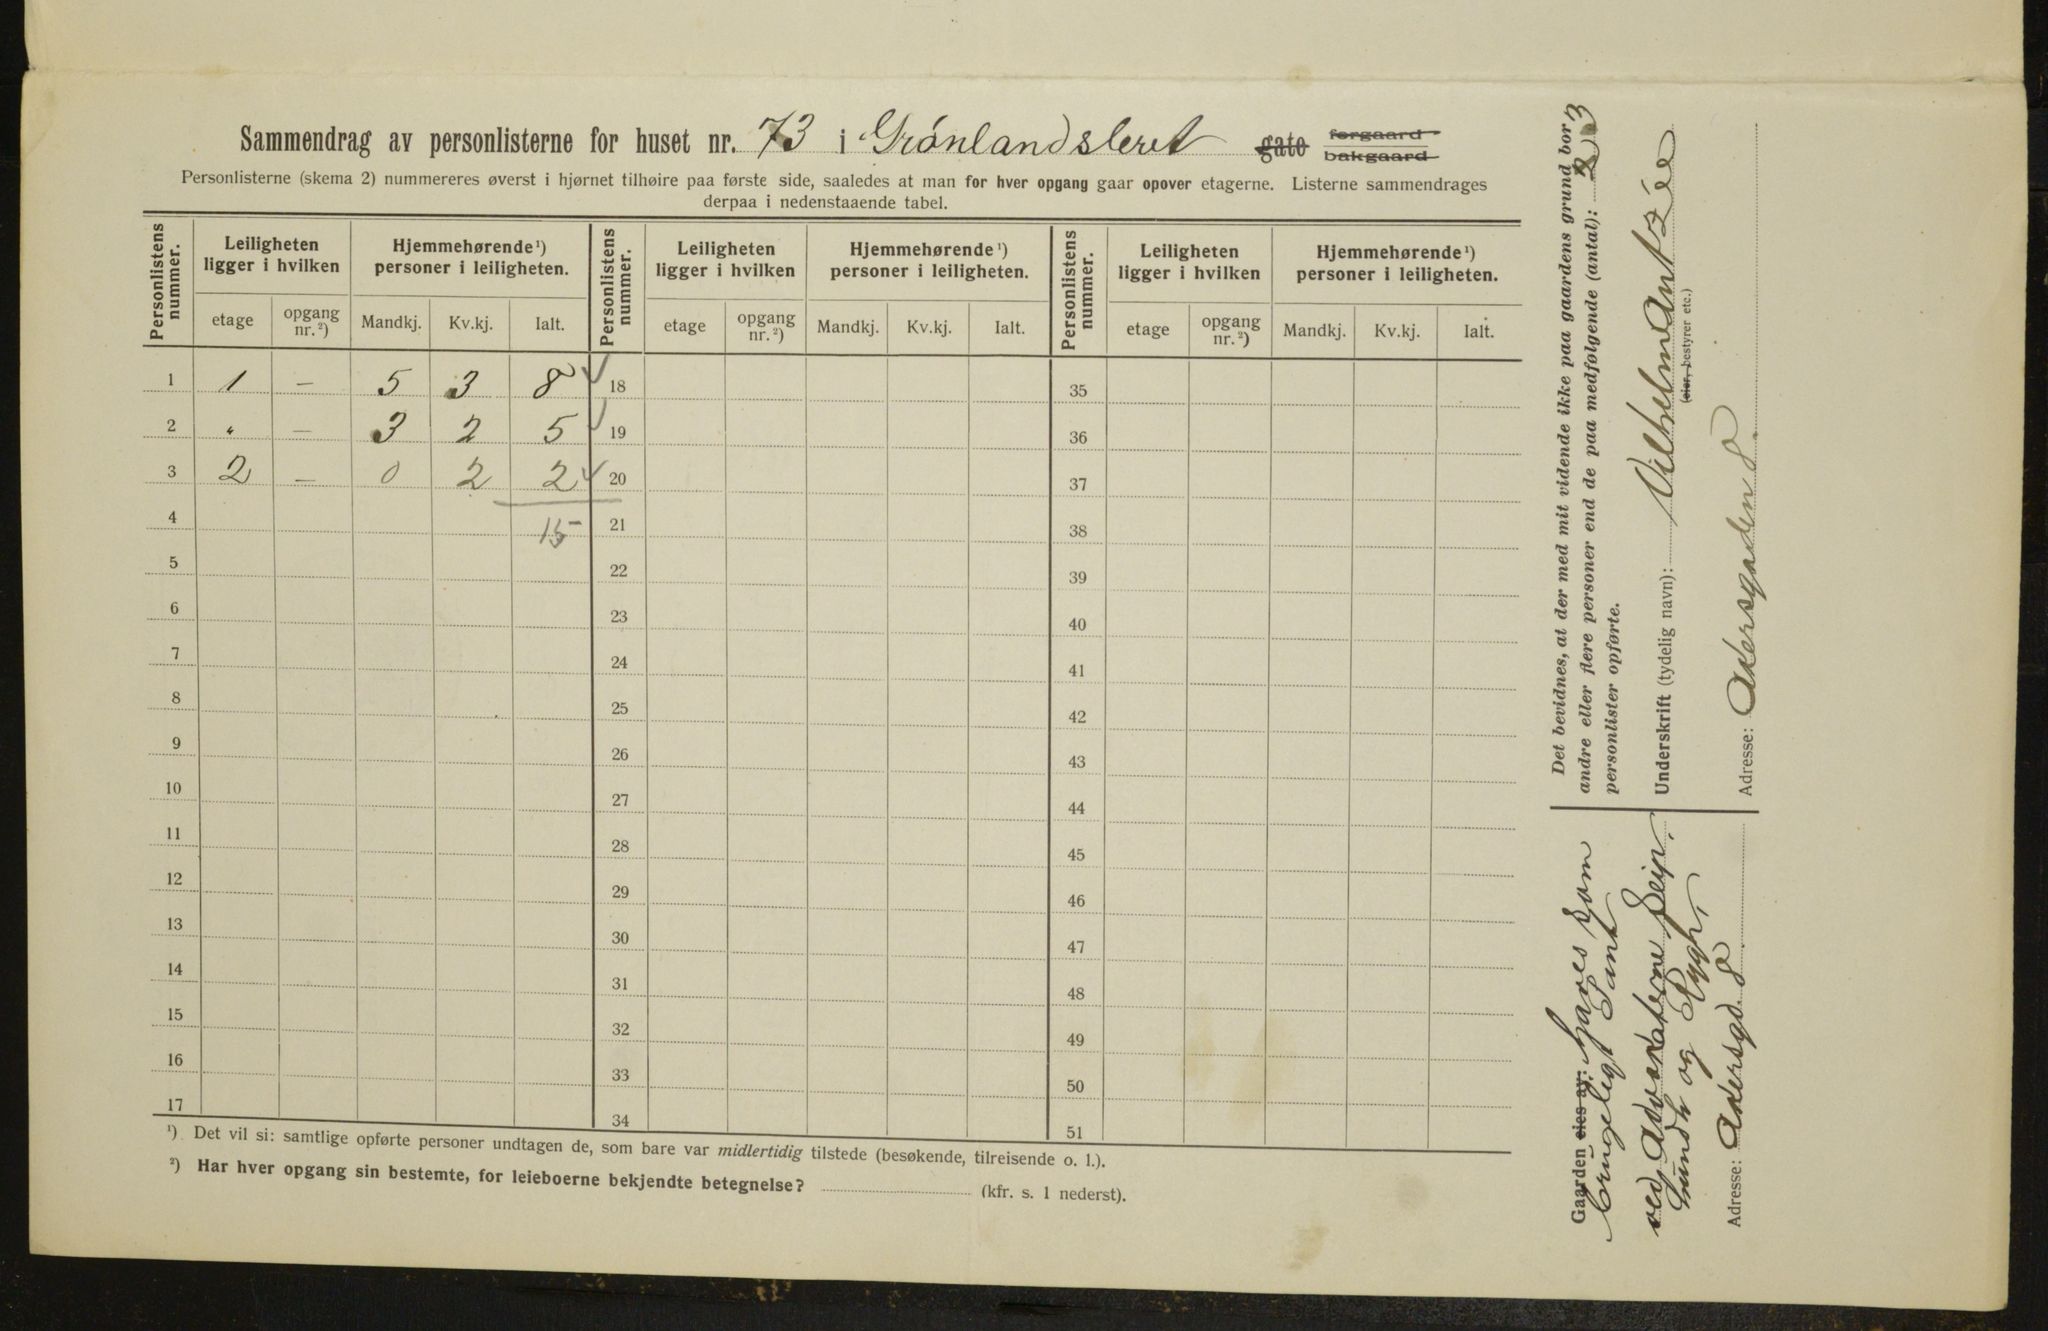 Sammendrag av personlisterne for huset nr. 73 i Grønlandsleret gate forgaard bakgaard
Personlisterne (skema 2) nummereres øverst i hjørnet tilhøire paa første side, saaledes at man for hver opgang gaar opover etagerne. Listerne sammendrages
derpaa i nedenstaaende tabel.
Personlistens nummer. Leiligheten ligger i hvilken Hjemmehørende ¹) personer i leiligheten. Personlistens nummer. Leiligheten ligger i hvilken Hjemmehørende ¹) personer i leiligheten. Personlistens nummer. Leiligheten ligger i hvilken Hjemmehørende ¹) personer i leiligheten.
etage opgang nr. ²) Mandkj. Kv.kj. Ialt. etage opgang nr. ²) Mandkj. Kv.kj. Ialt. etage opgang nr. ²) Mandkj. Kv.kj. Ialt.
1 1 — 5 3 8 ✓ 18 35
2 " — 3 2 5 ✓ 19 36
3 2 — 0 2 2 ✓ 20 37
4 15 21 38
5 22 39
6 23 40
7 24 41
8 25 42
9 26 43
10 27 44
11 28 45
12 29 46
13 30 47
14 31 48
15 32 49
16 33 50
17 34 51
¹) Det vil si: samtlige opførte personer undtagen de, som bare var midlertidig tilstede (besøkende, tilreisende o. l.).
²) Har hver opgang sin bestemte, for leieboerne bekjendte betegnelse? (kfr. s. 1 nederst).
Det bevidnes, at der med mit vidende ikke paa gaardens grund bor
andre eller flere personer end de paa medfølgende (antal): 2 3
personlister opførte.
Underskrift (tydelig navn): Vilhelm Antzée
(eier, bestyrer etc.)
Adresse: Akersgaden 8.
Gaarden eies av: haves som
brugeligt Pant
ved Advokaterne Seip,
og Rygh,
Adresse: Akersgd. 8